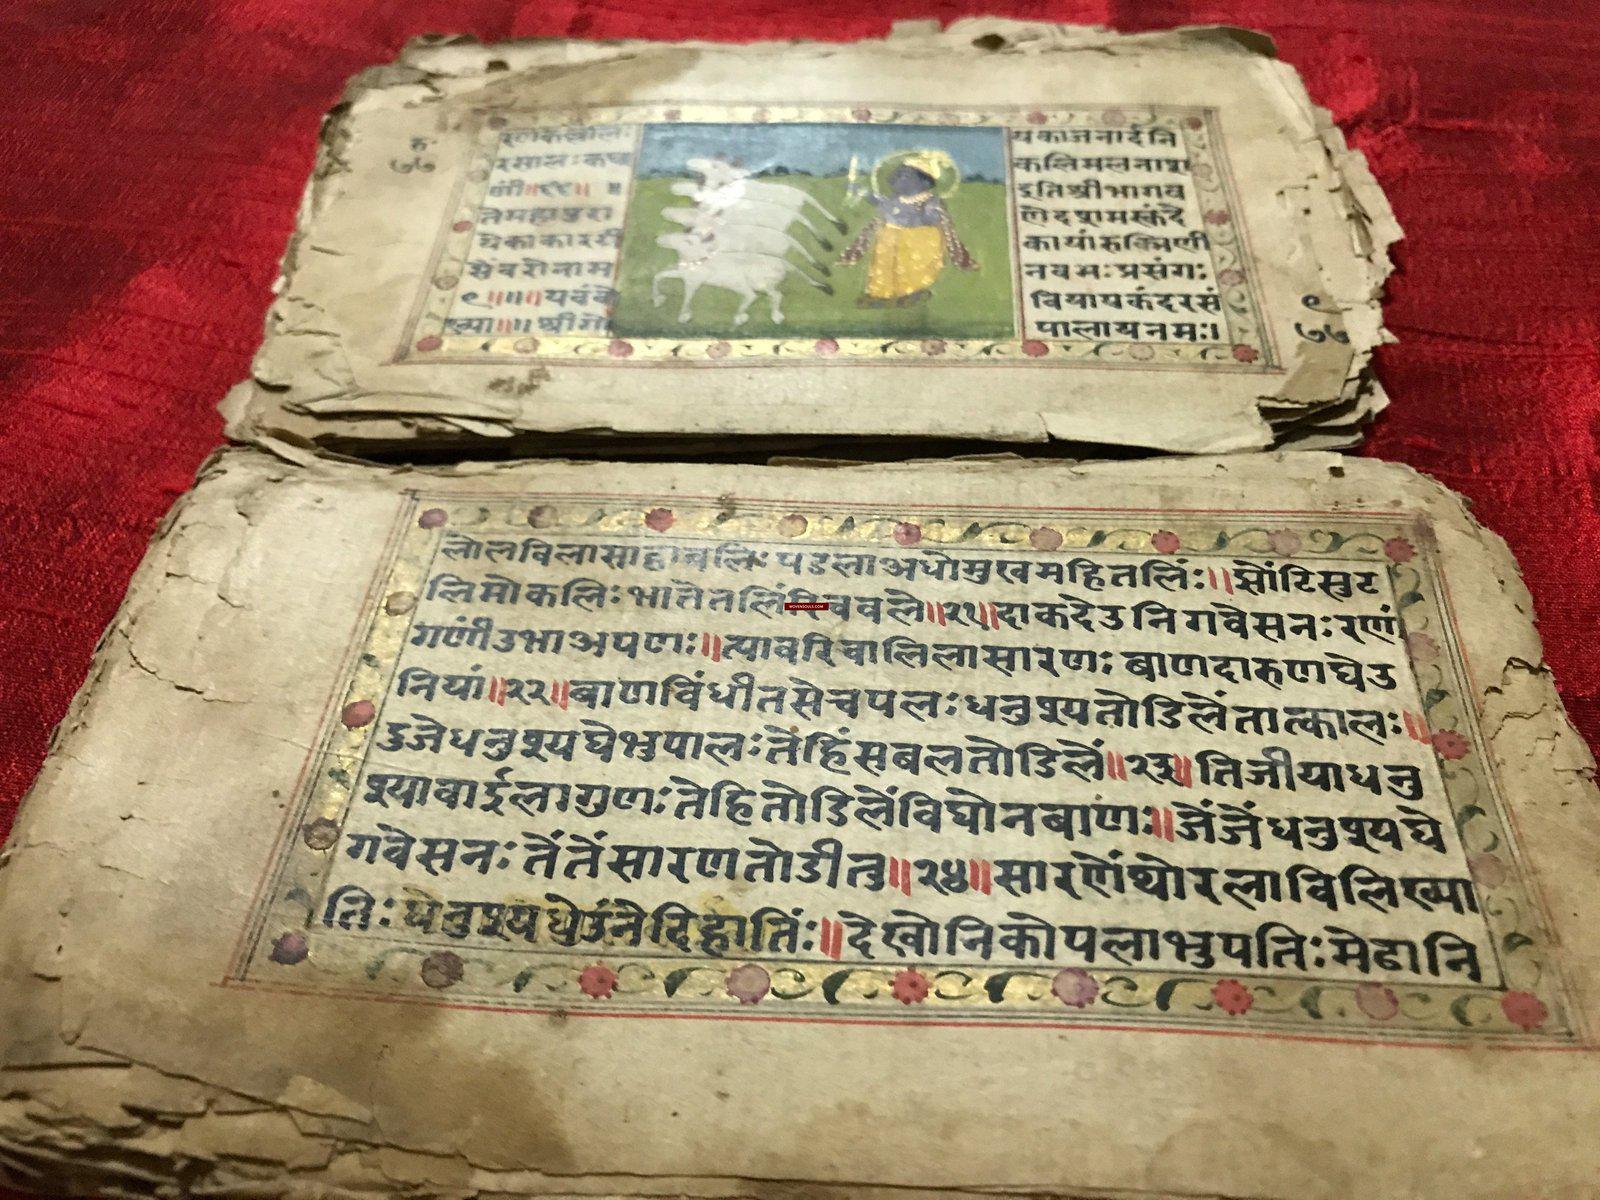 रु॰
७७
रसाल: कथा
तेमहाराष्ट्र
येकाकारटी
सैंवरोनाम
९॥॥॥यवंवे
ख्या॥॥ श्रीगो
यकाजनार्दनि
कलिमलनाश
इतिश्रीभागव
तेदशमस्कंदे
कायांरुक्मिणी
नवम: प्रसंग:
वियायकंदरसं
पालायनम:।
९
७७
लोलविलासाहाबलि: पडलाअधोमुखमहितलिं:॥झोंटिसुट
लिमोकलि: भातेतलिं WOVENSOULS.COM ववले॥२१॥दाकदेउनिगवेसन:रणं
गणींउभाअपण:॥त्यावरिचालिलासारण: बाणदारुणघेउ
नियां॥२२॥बाणविंधीतसेचपल:धनुश्यतोडिलेंतात्काल:॥
दुजेधनुश्यघेभुपाल:तेंहिंसबलतोडिलें॥२३॥तिजीयाधनु
श्यावाईलागुण:तेहितोडिलेंविघोनबाण:॥जेंजेंधनुश्यघे
गवेसन:तेंतेंसारणतोडीतु॥२४॥सारणेंथोरलाविलिख्या
ति:धेनुश्यघेउंनेदिहातिं:॥देखोनिकोपलाभुपति:मेढानि